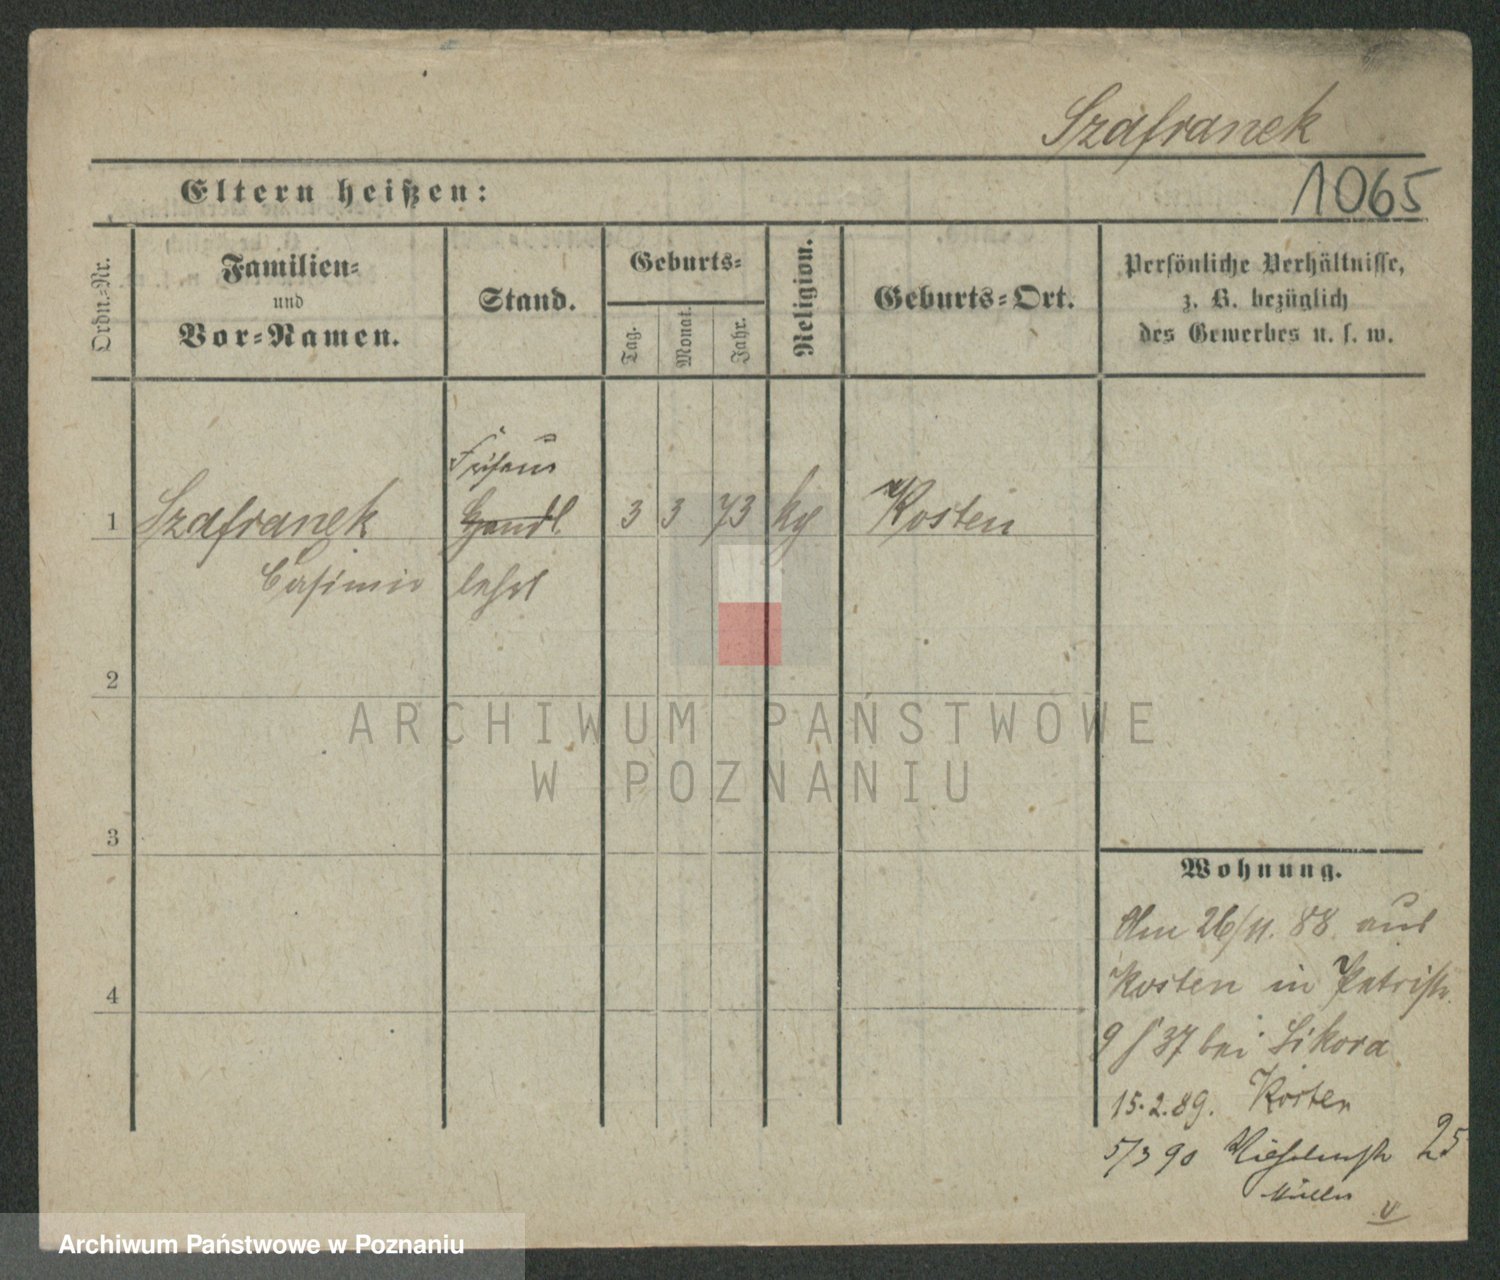 Szafranek
Eltern heißen:
1065
Ordn.-Nr.
Familien-
und
Vor-Namen.
Stand.
Geburts-
Tag.
Monat.
Jahr.
Religion.
Geburts-Ort.
Persönliche Verhältnisse,
z. B. bezüglich
des Gewerbes u. s. w.
1
Szafranek
Casimir
Friseur
Handl.
lehrl
3 3 73
Kosten
2
3
4
Wohnung.
Am 26/11. 88 aus
Kosten in
9 37 bei Sikora
15.2.89. Kosten
5/3 90 25
Müller
ARCHIWUM PAŃSTWOWE
W POZNANIU
Archiwum Państwowe w Poznaniu